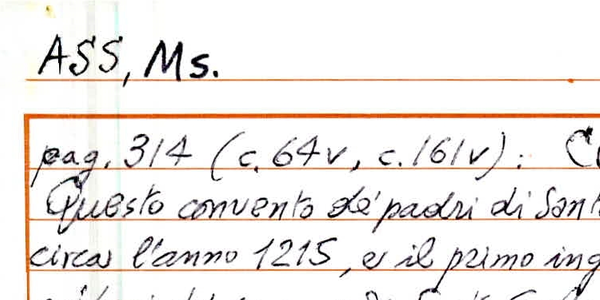 ASS, Ms.
pag. 314 (c. 64v, c. 161v):
Questo convento de' padri di Sant
circa l'anno 1215, e il primo ing